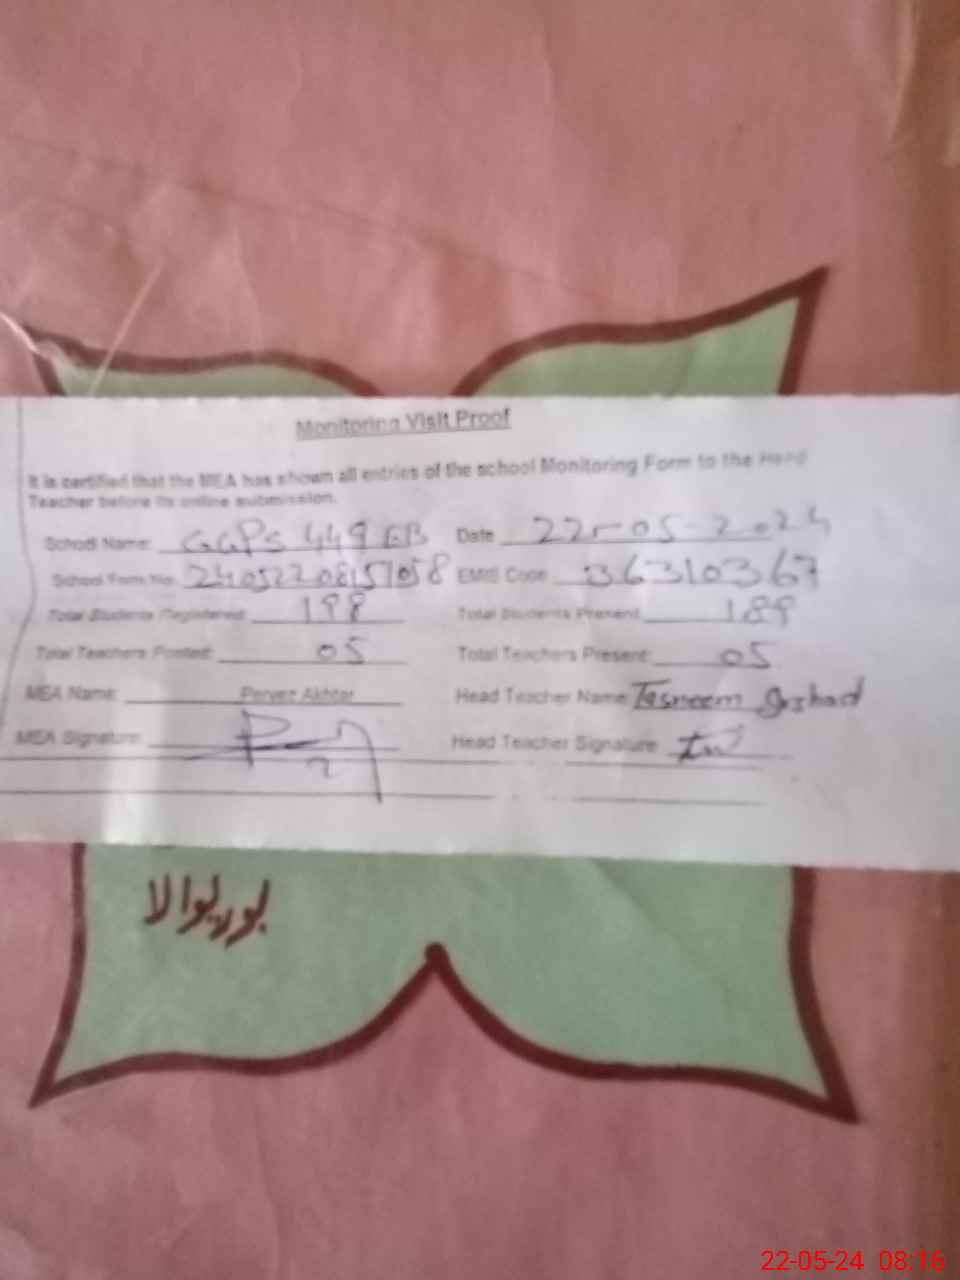 Monitoring Visit Proof
It is certified that the MEA has shown all entries of the school Monitoring Form to the Head
Teacher before its online submission.
School Name: GGPS 449 EB Date 22-05-2024
School Form No: 24052208151058 EMIS Code 36310367
Total Students Registered: 198 Total Students Present: 189
Total Teachers Posted: 05 Total Teachers Present: 05
MEA Name: Pervez Akhtar Head Teacher Name: Tasneem Arshad
MEA Signature: Head Teacher Signature
بوریوالا
22-05-24 08:16